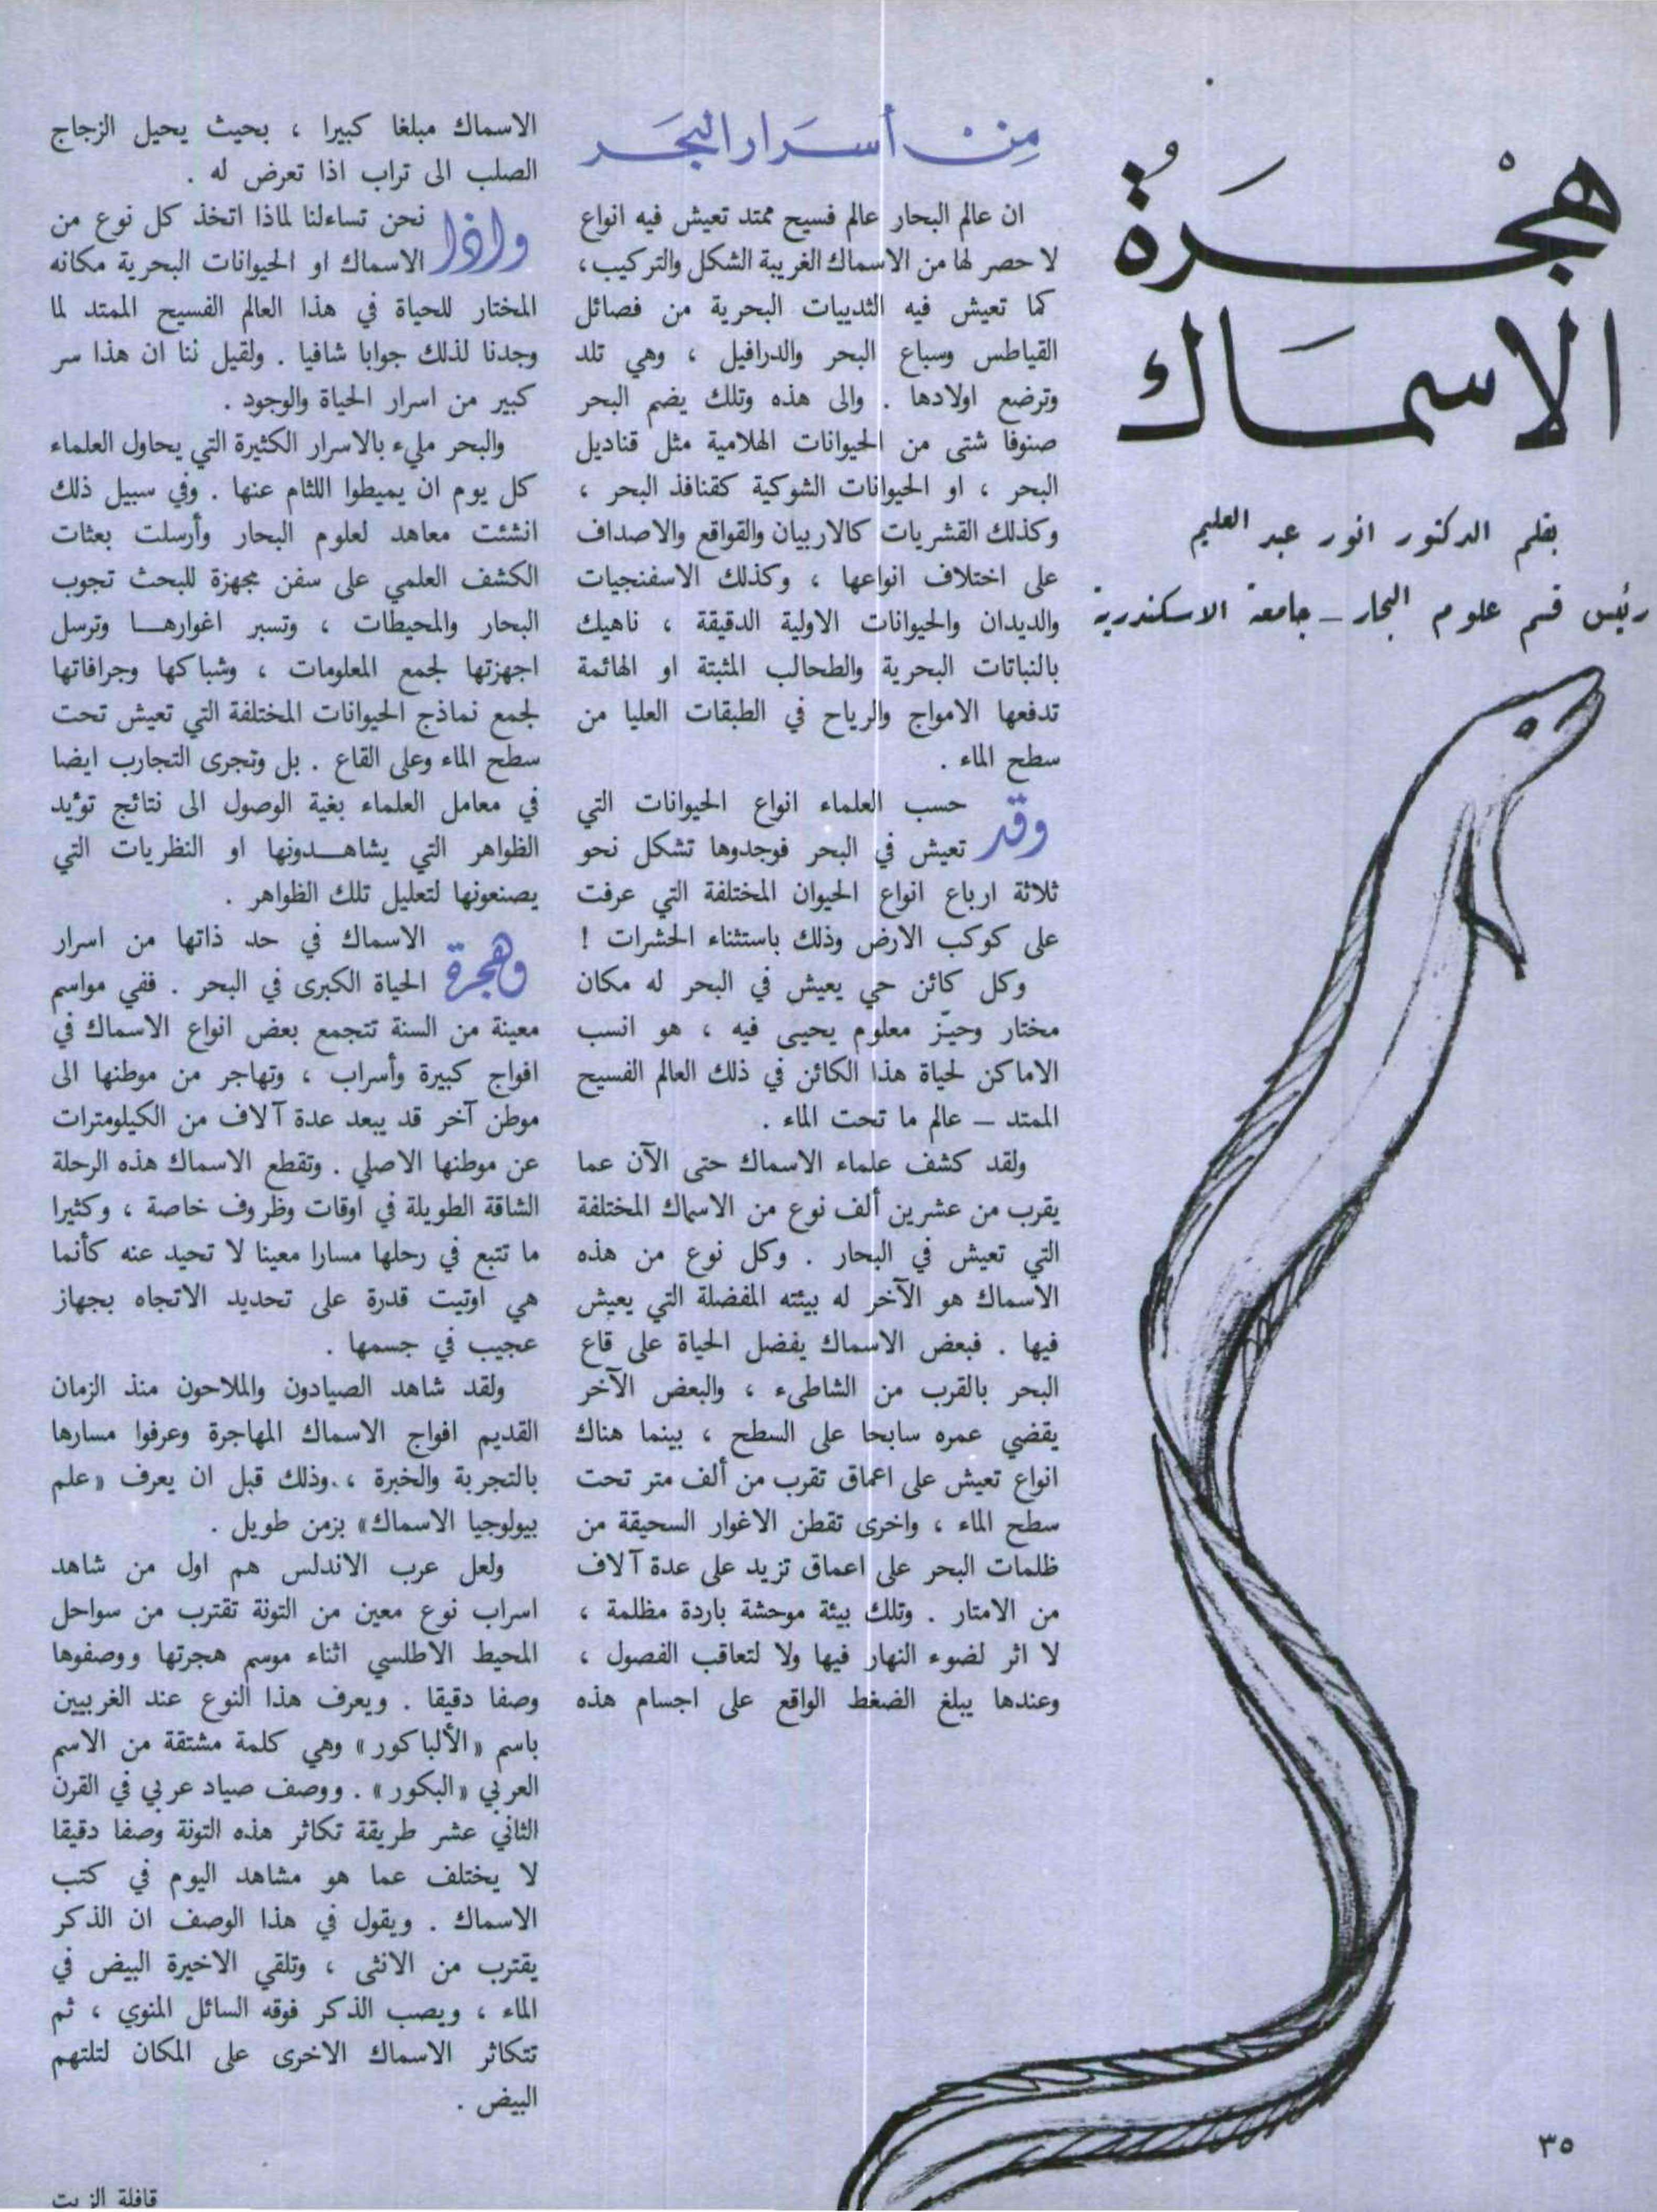 هِجْرَةُ
الاسماك
بقلم الدكتور انور عبد العليم
رئيس قسم علوم البحار – جامعة الاسكندرية
مِن أسرار البحر
ان عالم البحار عالم فسيح ممتد تعيش فيه انواع
لا حصر لها من الاسماك الغريبة الشكل والتركيب،
كما تعيش فيه الثدييات البحرية من فصائل
القياطس وسباع البحر والدرافيل ، وهي تلد
وترضع اولادها . والى هذه وتلك يضم البحر
صنوفا شتى من الحيوانات الهلامية مثل قناديل
البحر ، او الحيوانات الشوكية كقنافذ البحر ،
وكذلك القشريات كالاربيان والقواقع والاصداف
على اختلاف انواعها ، وكذلك الاسفنجيات
والديدان والحيوانات الاولية الدقيقة ، ناهيك
بالنباتات البحرية والطحالب المثبتة او الهائمة
تدفعها الامواج والرياح في الطبقات العليا من
سطح الماء .
وقد حسب العلماء انواع الحيوانات التي
تعيش في البحر فوجدوها تشكل نحو
ثلاثة ارباع انواع الحيوان المختلفة التي عرفت
على كوكب الارض وذلك باستثناء الحشرات !
وكل كائن حي يعيش في البحر له مكان
مختار وحيّز معلوم يحيى فيه ، هو انسب
الاماكن لحياة هذا الكائن في ذلك العالم الفسيح
الممتد – عالم ما تحت الماء .
ولقد كشف علماء الاسماك حتى الآن عما
يقرب من عشرين ألف نوع من الاسماك المختلفة
التي تعيش في البحار . وكل نوع من هذه
الاسماك هو الآخر له بيئته المفضلة التي يعيش
فيها . فبعض الاسماك يفضل الحياة على قاع
البحر بالقرب من الشاطىء ، والبعض الآخر
يقضي عمره سابحا على السطح ، بينما هناك
انواع تعيش على اعماق تقرب من ألف متر تحت
سطح الماء ، واخرى تقطن الاغوار السحيقة من
ظلمات البحر على اعماق تزيد على عدة آلاف
من الامتار . وتلك بيئة موحشة باردة مظلمة ،
لا اثر لضوء النهار فيها ولا لتعاقب الفصول ،
وعندها يبلغ الضغط الواقع على اجسام هذه
الاسماك مبلغا كبيرا ، بحيث يحيل الزجاج
الصلب الى تراب اذا تعرض له .
واذا نحن تساءلنا لماذا اتخذ كل نوع من
الاسماك او الحيوانات البحرية مكانه
المختار للحياة في هذا العالم الفسيح الممتد لما
وجدنا لذلك جوابا شافيا . ولقيل لنا ان هذا سر
كبير من اسرار الحياة والوجود .
والبحر مليء بالاسرار الكثيرة التي يحاول العلماء
كل يوم ان يميطوا اللثام عنها . وفي سبيل ذلك
انشئت معاهد لعلوم البحار وأرسلت بعثات
الكشف العلمي على سفن مجهزة للبحث تجوب
البحار والمحيطات ، وتسبر اغوارهـا وترسل
اجهزتها لجمع المعلومات ، وشباكها وجرافاتها
لجمع نماذج الحيوانات المختلفة التي تعيش تحت
سطح الماء وعلى القاع . بل وتجرى التجارب ايضا
في معامل العلماء بغية الوصول الى نتائج تؤيد
الظواهر التي يشاهـدونها او النظريات التي
يصنعونها لتعليل تلك الظواهر .
وهجرة الاسماك في حد ذاتها من اسرار
الحياة الكبرى في البحر . ففي مواسم
معينة من السنة تتجمع بعض انواع الاسماك في
افواج كبيرة وأسراب ، وتهاجر من موطنها الى
موطن آخر قد يبعد عدة آلاف من الكيلومترات
عن موطنها الاصلي . وتقطع الاسماك هذه الرحلة
الشاقة الطويلة في اوقات وظروف خاصة ، وكثيرا
ما تتبع في رحلها مسارا معينا لا تحيد عنه كأنما
هي اوتيت قدرة على تحديد الاتجاه بجهاز
عجيب في جسمها .
ولقد شاهد الصيادون والملاحون منذ الزمان
القديم افواج الاسماك المهاجرة وعرفوا مسارها
بالتجربة والخبرة ، وذلك قبل ان يعرف «علم
بيولوجيا الاسماك» بزمن طويل .
ولعل عرب الاندلس هم اول من شاهد
اسراب نوع معين من التونة تقترب من سواحل
المحيط الاطلسي اثناء موسم هجرتها ووصفوها
وصفا دقيقا . ويعرف هذا النوع عند الغربيين
باسم «الألباكور» وهي كلمة مشتقة من الاسم
العربي «البكور» . ووصف صياد عربي في القرن
الثاني عشر طريقة تكاثر هذه التونة وصفا دقيقا
لا يختلف عما هو مشاهد اليوم في كتب
الاسماك . ويقول في هذا الوصف ان الذكر
يقترب من الانثى ، وتلقي الاخيرة البيض في
الماء ، ويصب الذكر فوقه السائل المنوي ، ثم
تتكاثر الاسماك الاخرى على المكان لتلتهم
البيض .
٣٥
قافلة الزيت